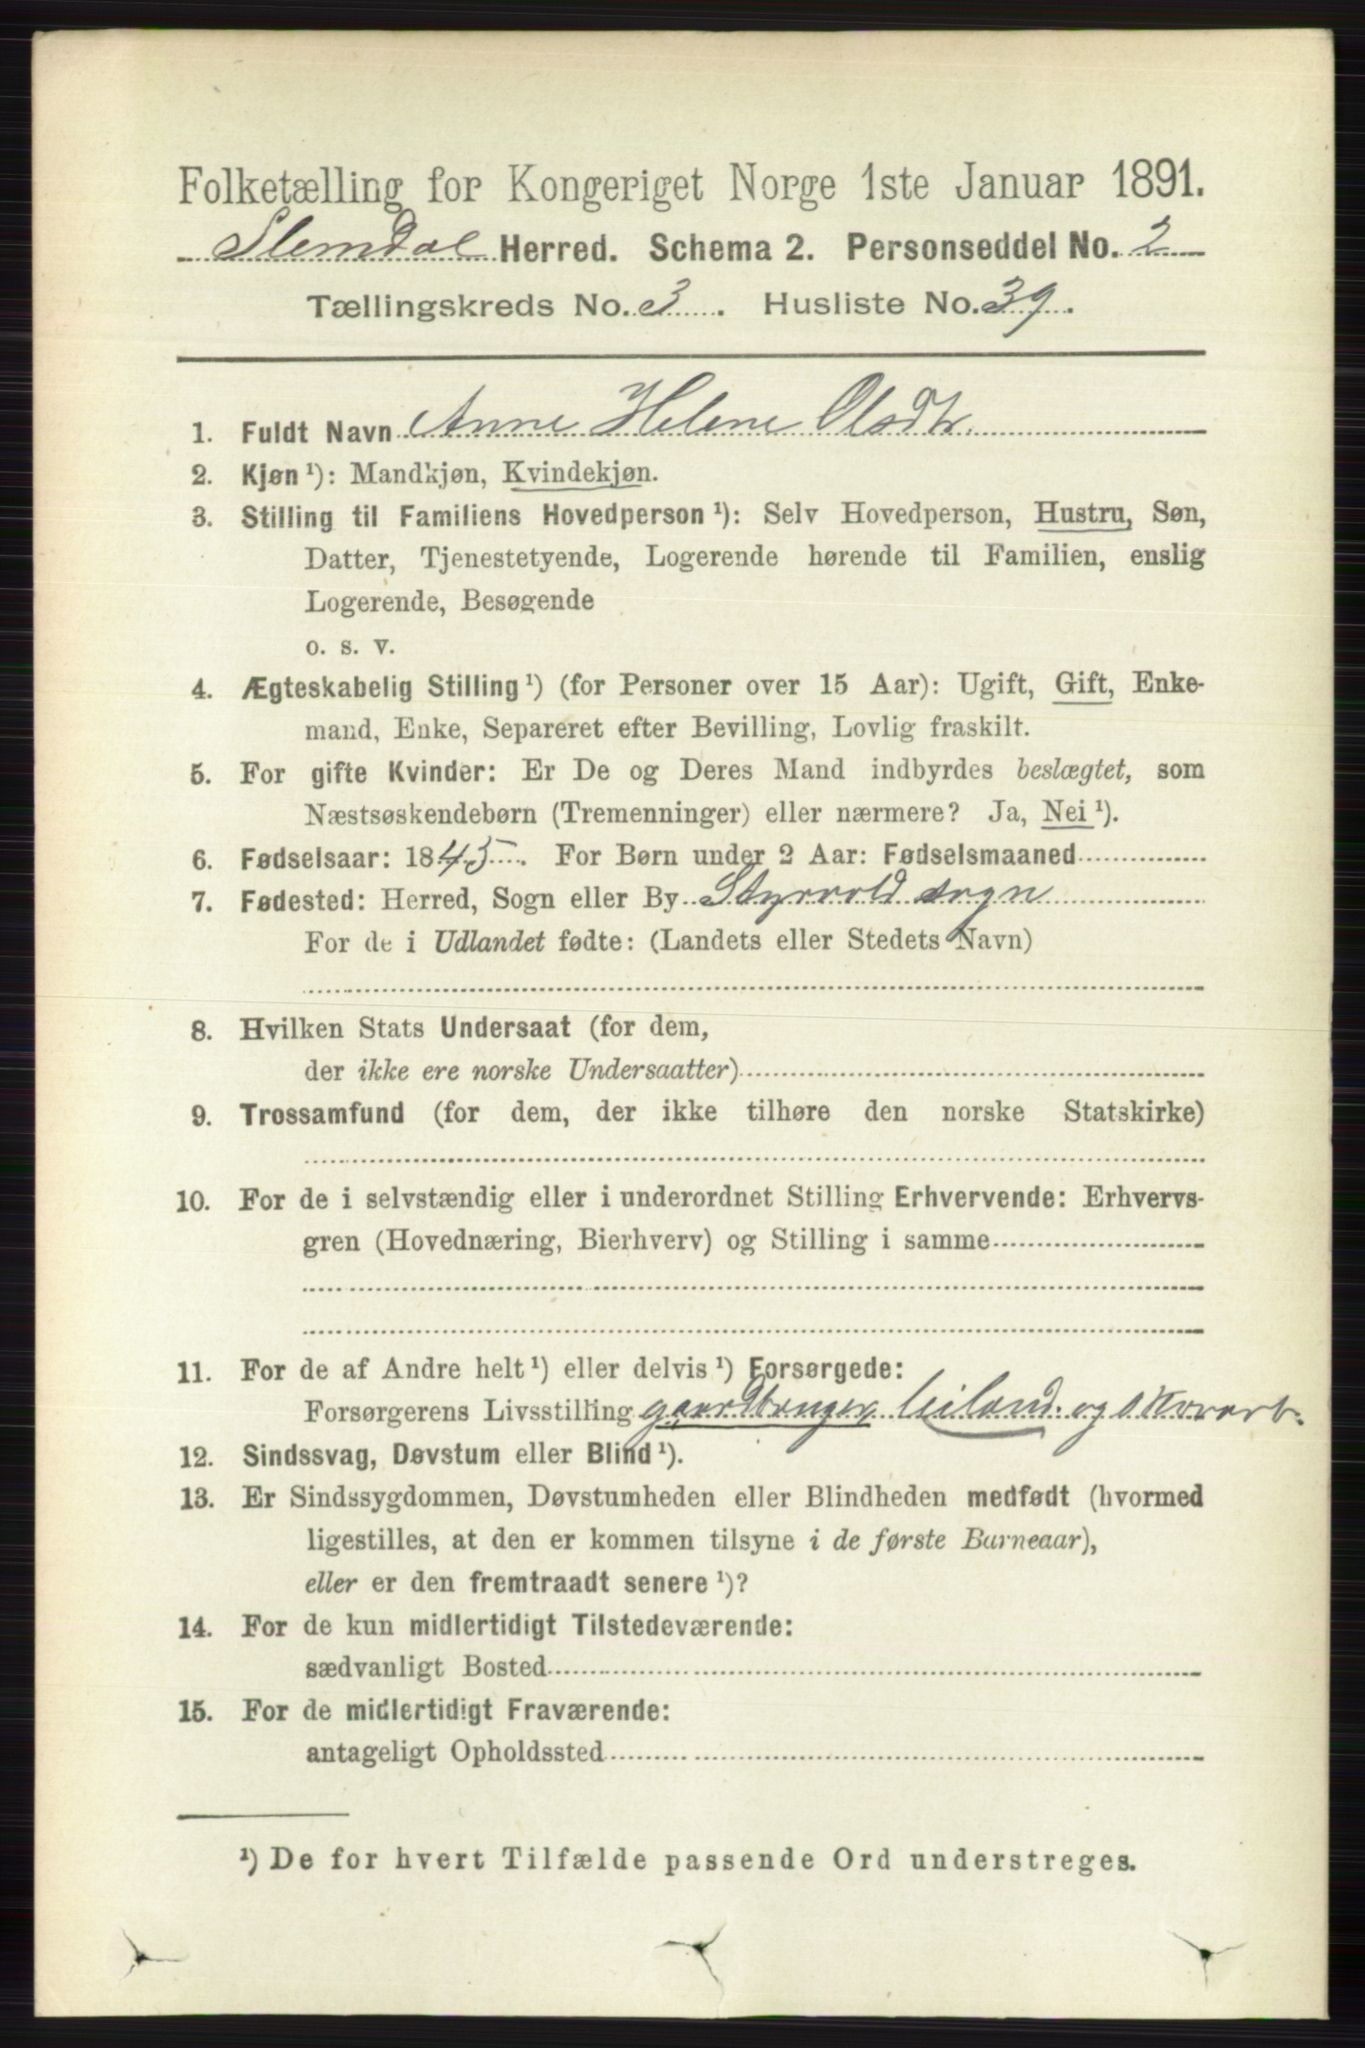 Folketælling for Kongeriget Norge 1ste Januar 1891.
Slemdal Herred. Schema 2. Personseddel No. 2
Tællingskreds No. 3. Husliste No. 39.
1. Fuldt Navn Anne Helene Olsdtr.
2. Kjøn¹): Mandkjøn, Kvindekjøn.
3. Stilling til Familiens Hovedperson¹): Selv Hovedperson, Hustru, Søn,
Datter, Tjenestetyende, Logerende hørende til Familien, enslig
Logerende, Besøgende
o. s. v.
4. Ægteskabelig Stilling¹) (for Personer over 15 Aar): Ugift, Gift, Enke-
mand, Enke, Separeret efter Bevilling, Lovlig fraskilt.
5. For gifte Kvinder: Er De og Deres Mand indbyrdes beslægtet, som
Næstsøskendebørn (Tremenninger) eller nærmere? Ja, Nei¹).
6. Fødselsaar: 1845. For Børn under 2 Aar: Fødselsmaaned
7. Fødested: Herred, Sogn eller By Styrvold sogn
For de i Udlandet fødte: (Landets eller Stedets Navn)
8. Hvilken Stats Undersaat (for dem,
der ikke ere norske Undersaatter)
9. Trossamfund (for dem, der ikke tilhøre den norske Statskirke)
10. For de i selvstændig eller i underordnet Stilling Erhvervende: Erhvervs-
gren (Hovednæring, Bierhverv) og Stilling i samme
11. For de af Andre helt¹) eller delvis¹) Forsørgede:
Forsørgerens Livsstilling gaardbruger, leiland. og skovarb.
12. Sindssvag, Døvstum eller Blind¹).
13. Er Sindssygdommen, Døvstumheden eller Blindheden medfødt (hvormed
ligestilles, at den er kommen tilsyne i de første Barneaar),
eller er den fremtraadt senere¹)?
14. For de kun midlertidigt Tilstedeværende:
sædvanligt Bosted
15. For de midlertidigt Fraværende:
antageligt Opholdssted
¹) De for hvert Tilfælde passende Ord understreges.